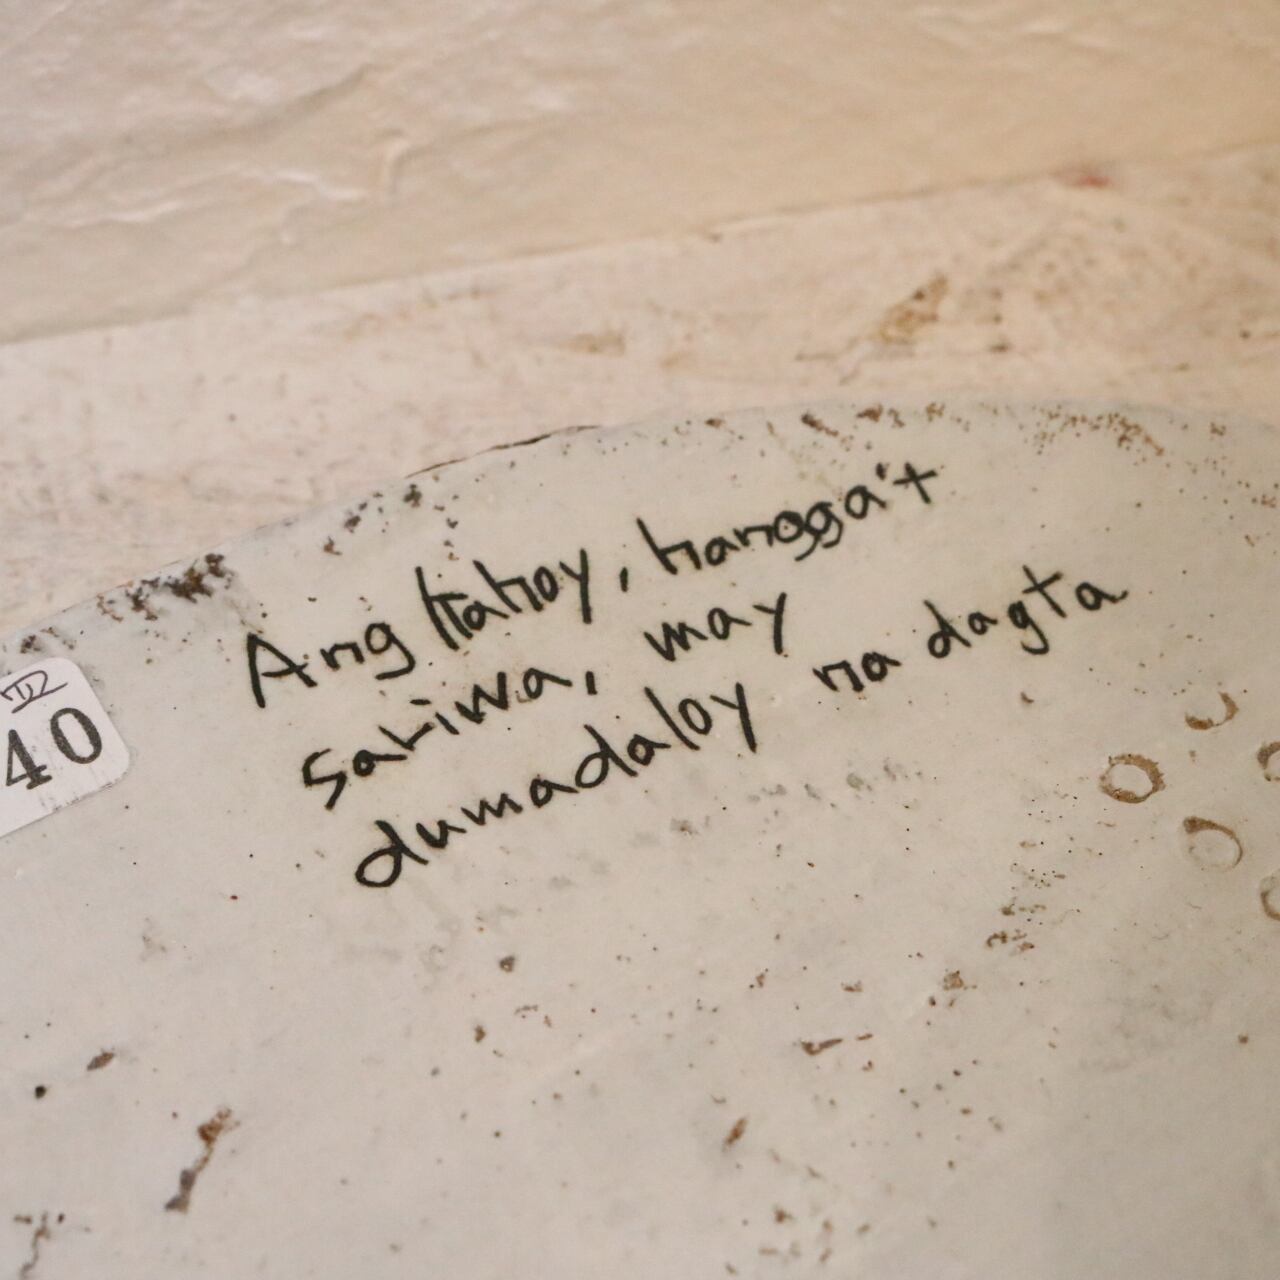 Ang kahoy, hangga't
sariwa, may
dumadaloy na dagta
40